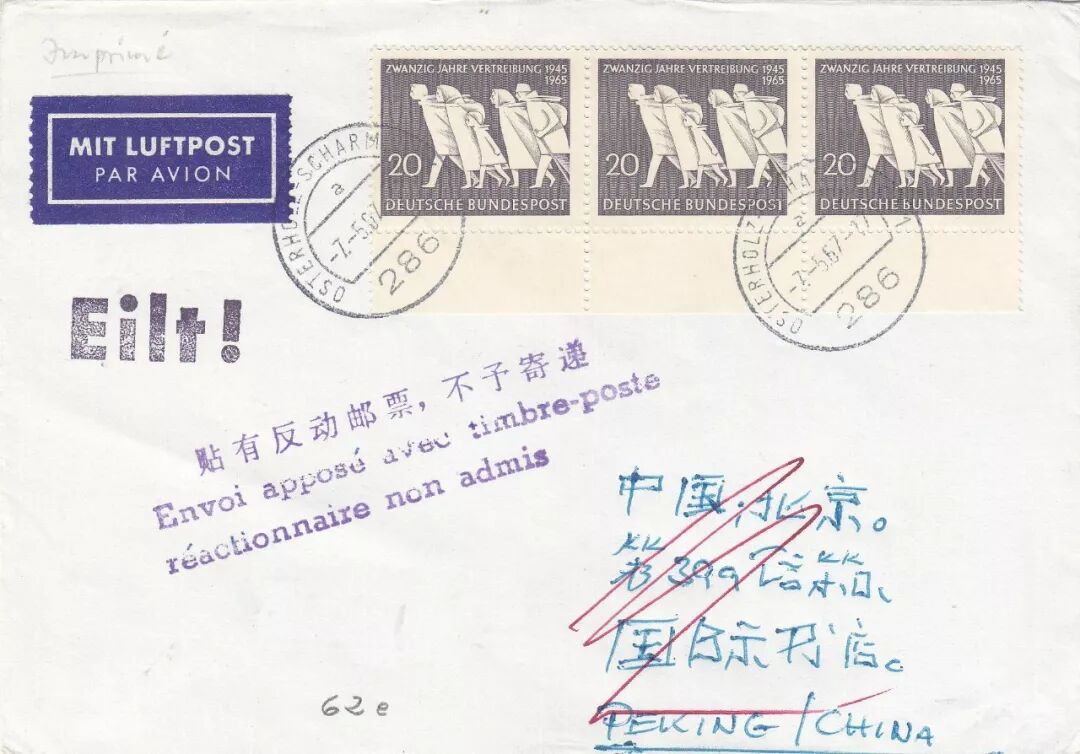 Imprimé
MIT LUFTPOST
PAR AVION
ZWANZIG JAHRE VERTREIBUNG 1945
1965
20
DEUTSCHE BUNDESPOST
ZWANZIG JAHRE VERTREIBUNG 1945
1965
20
DEUTSCHE BUNDESPOST
ZWANZIG JAHRE VERTREIBUNG 1945
1965
20
DEUTSCHE BUNDESPOST
OSTERHOLZ-SCHARM
a
-7.-5.6
286
OSTERHOLZ
a
-7.-5.67-17
286
Eilt!
贴有反动邮票，不予寄递
Envoi apposé avec timbre-poste
réactionnaire non admis
中国.北京。
第399信箱、
国际书店。
PEKING/CHINA
62e